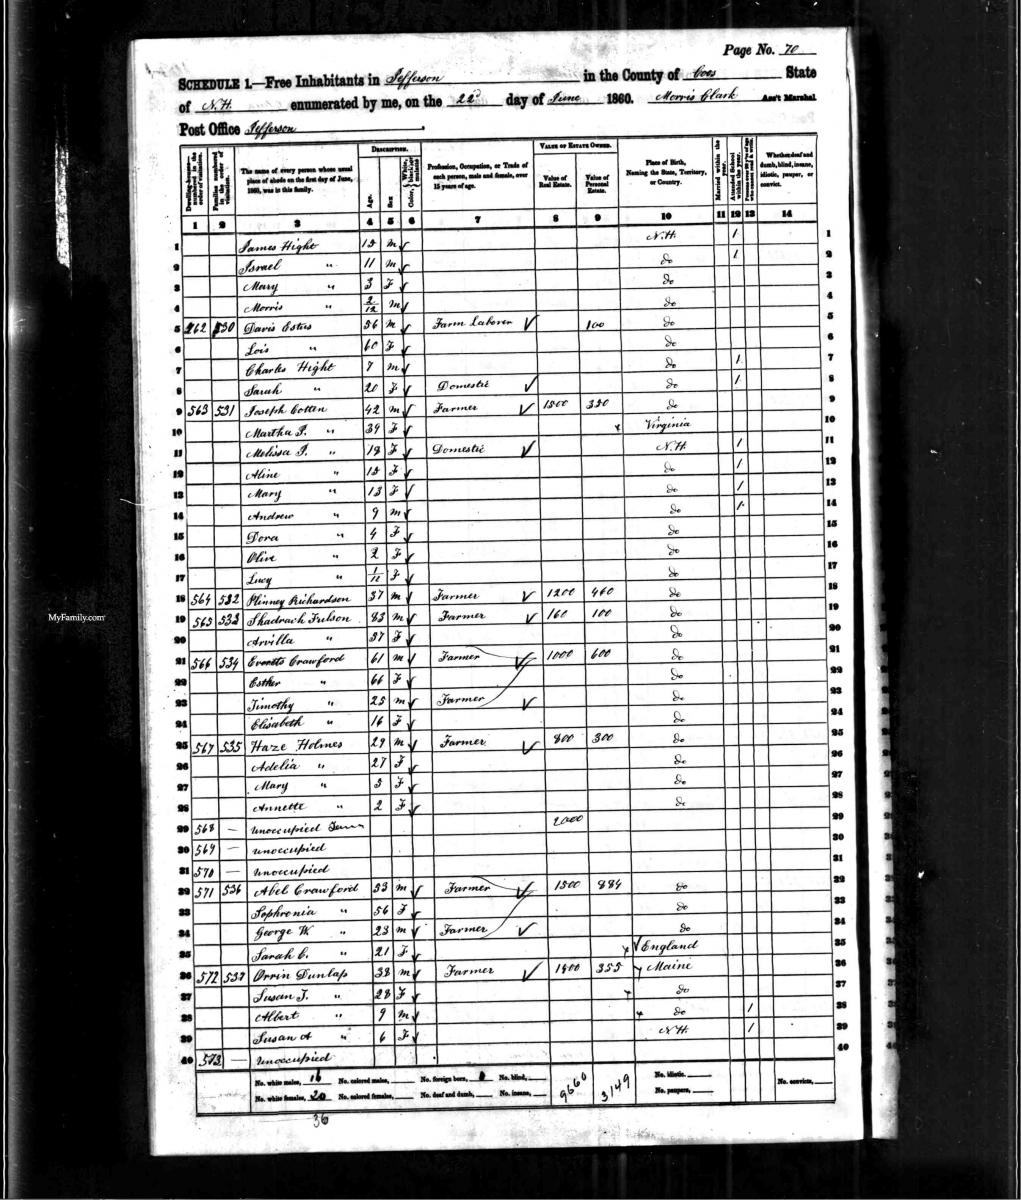 Page No. 70
SCHEDULE 1.—Free Inhabitants in Jefferson in the County of Coos State
of N.H. enumerated by me, on the 22d day of June 1860. Morris Clark Ass't Marshal
Post Office Jefferson
Dwelling-houses—numbered in the order of visitation.
Families numbered in the order of visitation.
The name of every person whose usual place of abode on the first day of June, 1860, was in this family.
DESCRIPTION.
Age.
Sex
Color,
Profession, Occupation, or Trade of each person, male and female, over 15 years of age.
VALUE OF ESTATE OWNED.
Value of Real Estate.
Value of Personal Estate.
Place of Birth, Naming the State, Territory, or Country.
Married within the year.
Attended School within the year.
Whether deaf and dumb, blind, insane, idiotic, pauper, or convict.
1 2 3 4 5 6 7 8 9 10 11 12 13 14
1 James Hight 15 m N.H. 1 1
2 Israel " 11 m do 1 2
3 Mary " 3 F do 3
4 Morris " 2/12 m do 4
5 562 530 Davis Estus 56 m Farm Laborer 100 do 5
6 Lois " 60 F do 6
7 Charles Hight 7 m do 1 7
8 Sarah " 20 F Domestic do 1 8
9 563 531 Joseph Cotten 42 m Farmer 1500 350 do 9
10 Martha P. " 39 F x Virginia 10
11 Melissa P. " 18 F Domestic N.H. 1 11
12 Aline " 15 F do 1 12
13 Mary " 13 F do 1 13
14 Andrew " 9 m do 1 14
15 Dora " 4 F do 15
16 Olive " 2 F do 16
17 Lucy " 1/12 F do 17
18 564 532 Plinney Richardson 37 m Farmer 1200 460 do 18
19 565 533 Shadrach Fulson 83 m Farmer 160 100 do 19
20 Arvilla " 37 F do 20
21 566 534 Everets Crawford 61 m Farmer 1000 600 do 21
22 Esther " 66 F do 22
23 Timothy " 25 m Farmer do 23
24 Elisabeth " 16 F do 24
25 567 535 Haze Holmes 29 m Farmer 800 300 do 25
26 Adelia " 27 F do 26
27 Mary " 3 F do 27
28 Annette " 2 F do 28
29 568 — Unoccupied 2000 29
30 569 — Unoccupied 30
31 570 — Unoccupied 31
32 571 536 Abel Crawford 53 m Farmer 1500 884 do 32
33 Sophronia " 56 F do 33
34 George W. " 23 m Farmer do 34
35 Sarah C. " 21 F x England 35
36 572 537 Orrin Dunlap 38 m Farmer 1400 355 Maine 36
37 Susan J. " 28 F do 37
38 Albert " 9 m do 1 38
39 Susan A " 6 F N.H. 1 39
40 573 — Unoccupied 40
No. white males, 16 No. colored males, No. foreign born, No. blind, No. idiotic,
No. white females, 20 No. colored females, No. deaf and dumb, No. insane, 9660 3149 No. paupers, No. convicts,
36
MyFamily.com